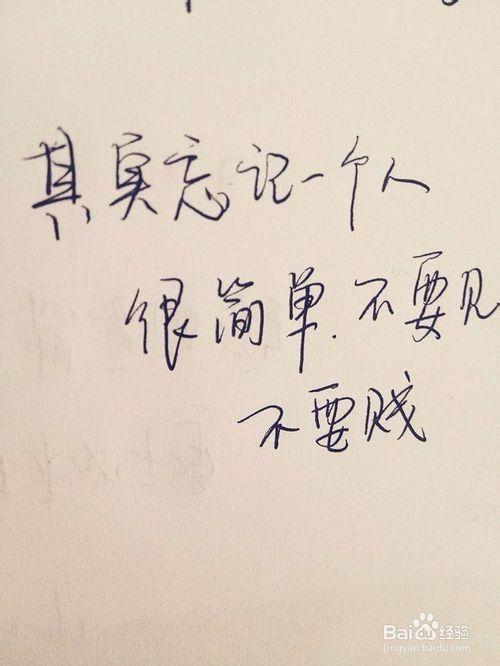 其实忘记一个人
很简单.不要见
不要贱
Baidu经验
jingyan.baidu.com